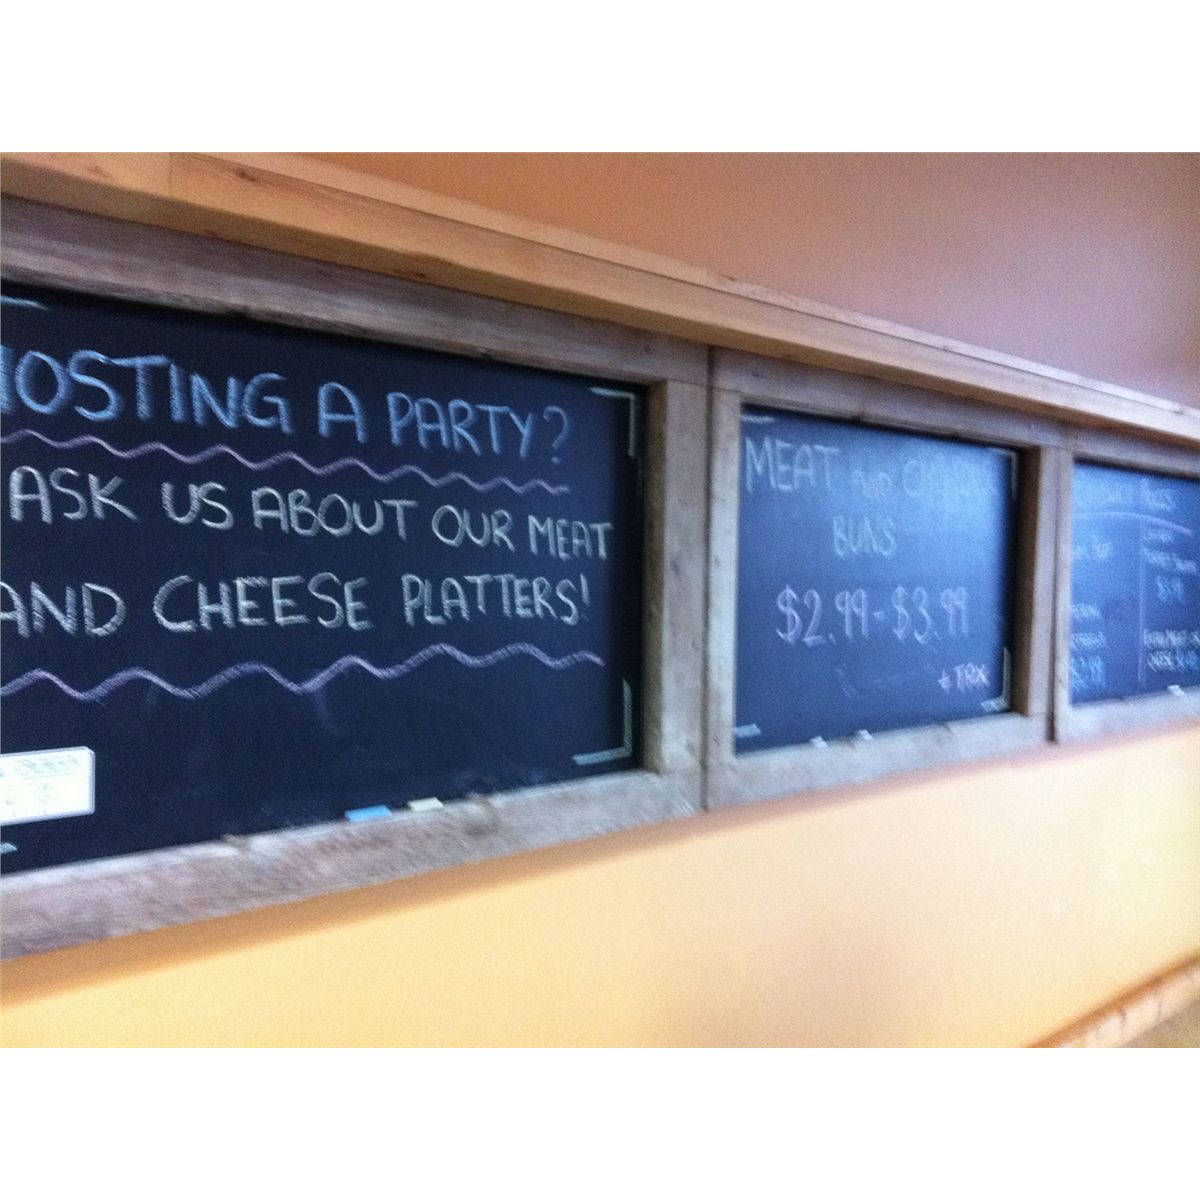 HOSTING A PARTY?
ASK US ABOUT OUR MEAT
AND CHEESE PLATTERS!
MEAT AND CHEESE
BUNS
$2.99-$3.99
+ TAX
EXTRA MEAT
CHEESE
$2.99